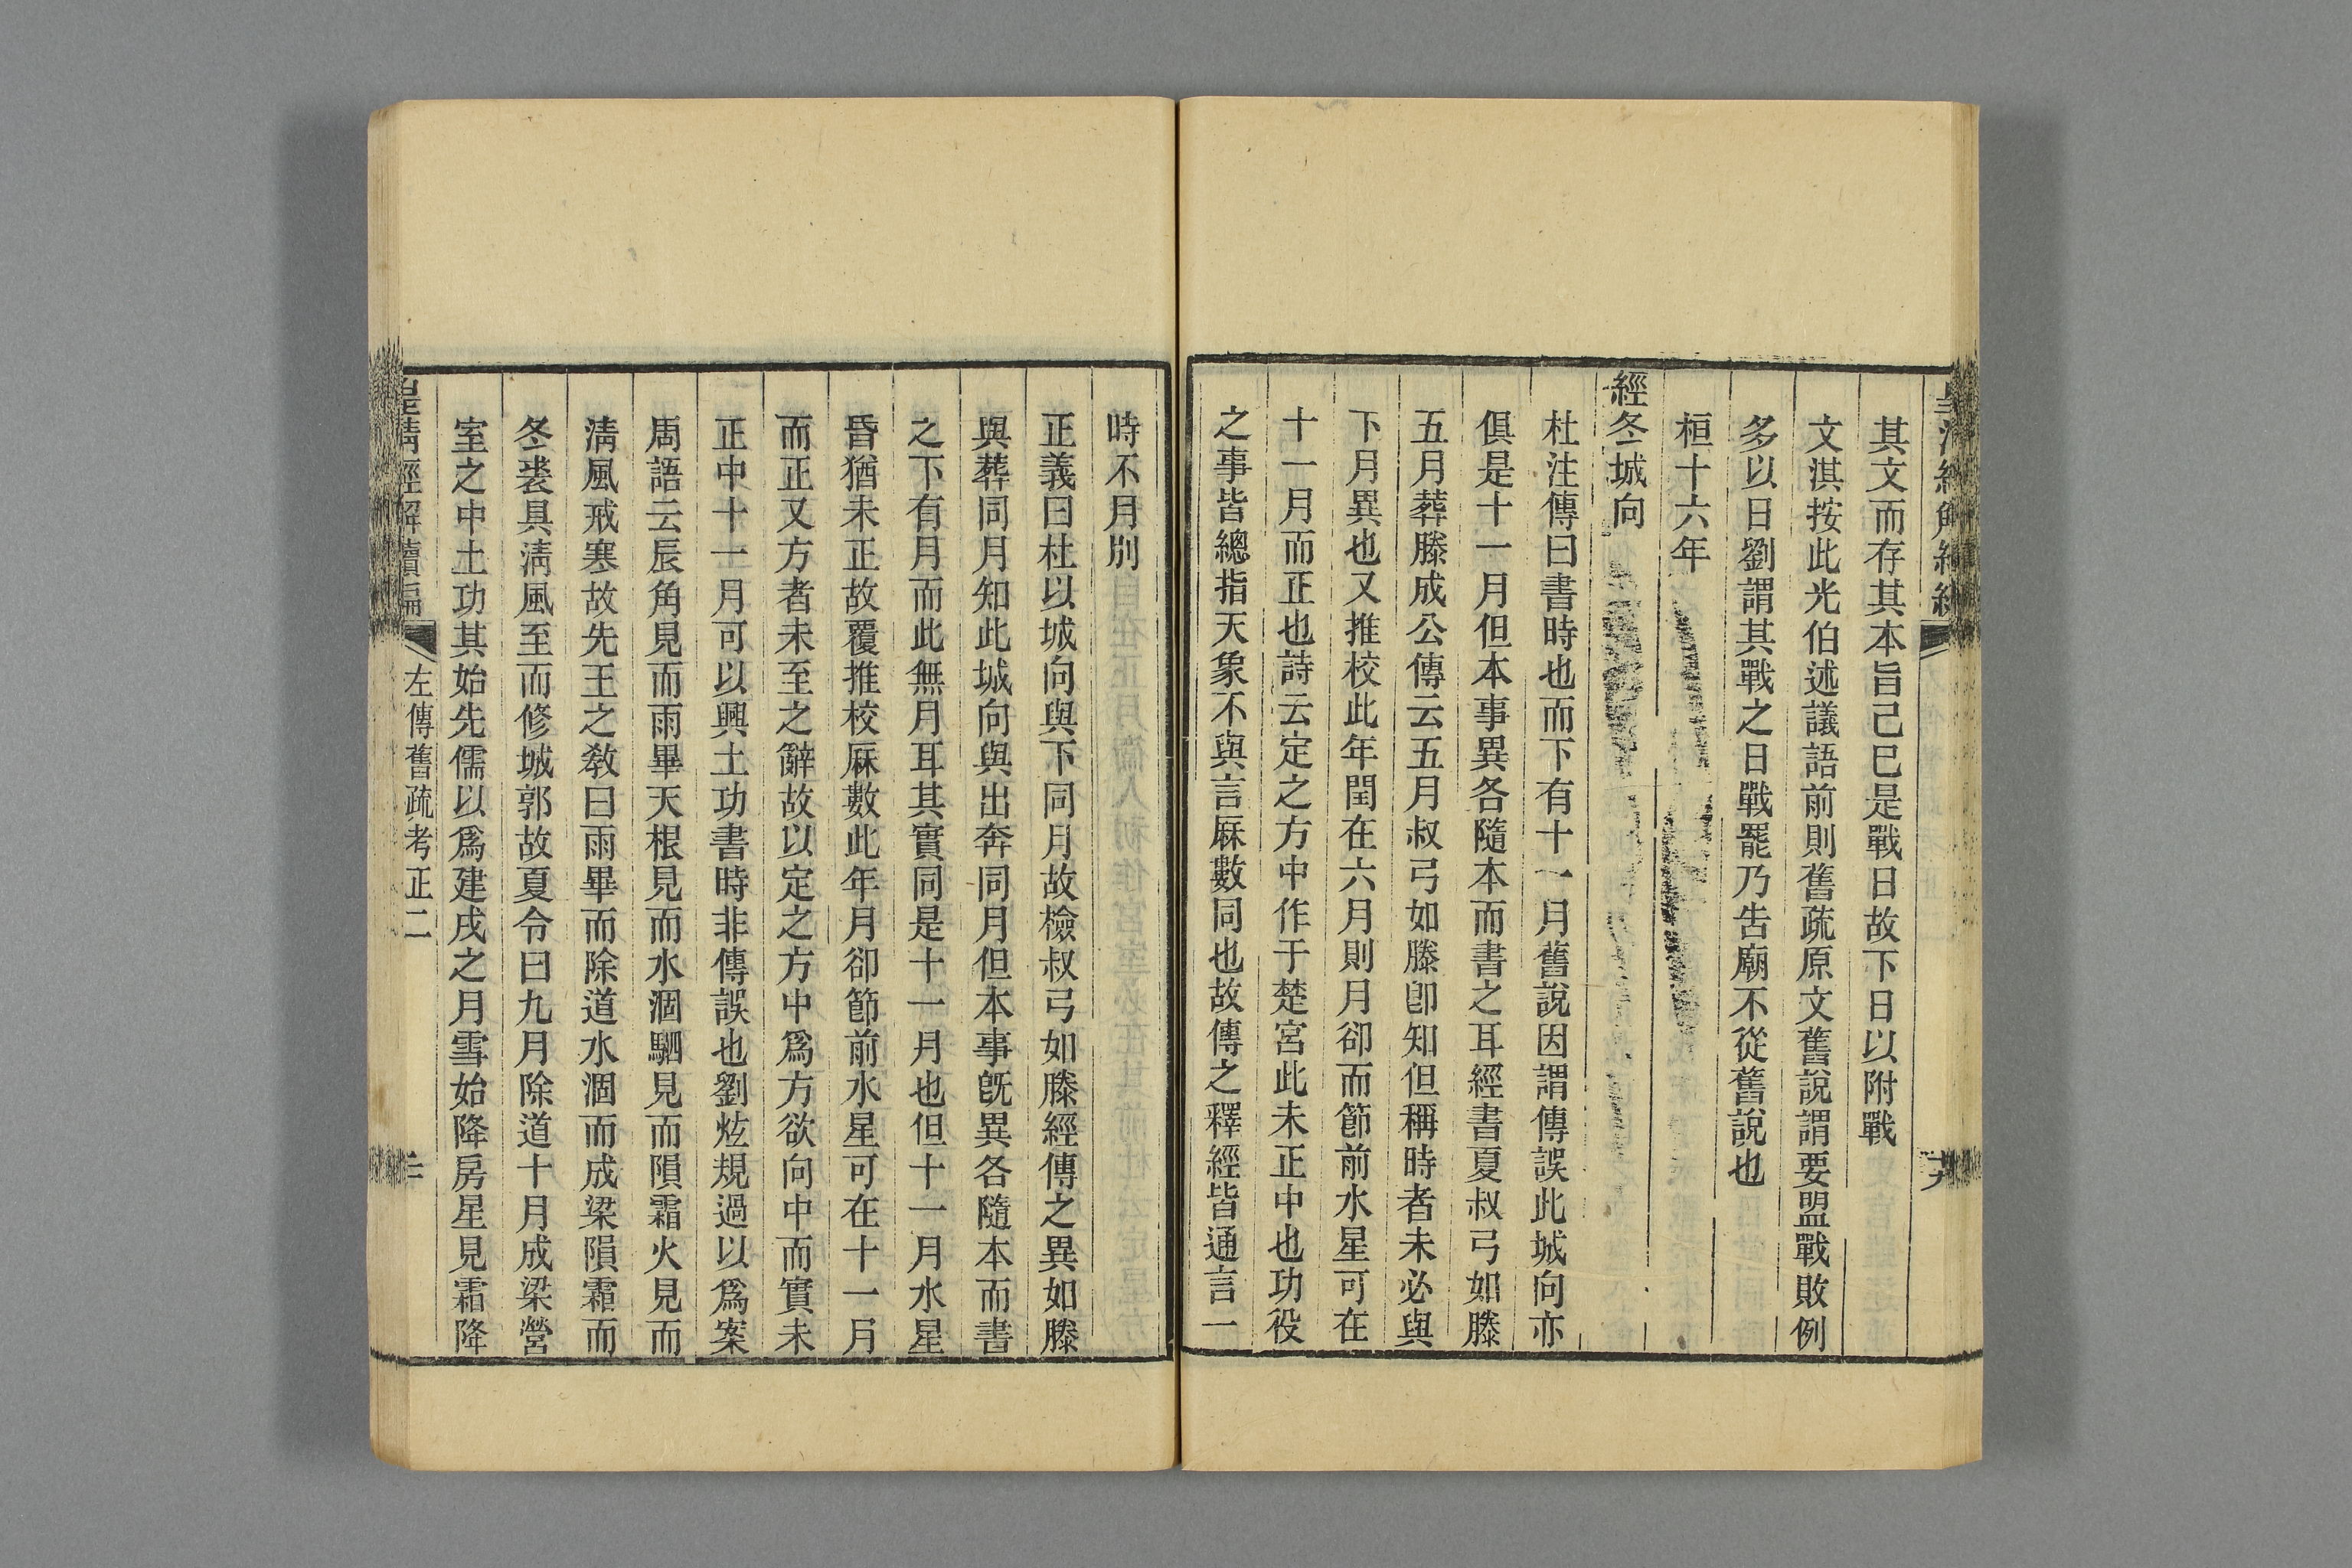 其文而存其本旨己巳是戰日故下日以附戰
文淇按此光伯述議語前則舊疏原文舊說謂要盟戰敗例
多以日劉謂其戰之日戰罷乃告廟不從舊說也
桓十六年
經冬城向
杜注傳曰書時也而下有十一月舊說因謂傳誤此城向亦
俱是十一月但本事異各隨本而書之耳經書夏叔弓如滕
五月葬滕成公傳云五月叔弓如滕卽知但稱時者未必與
下月異也又推校此年閏在六月則月卻而節前水星可在
十一月而正也詩云定之方中作于楚宮此未正中也功役
之事皆總指天象不與言厤數同也故傳之釋經皆通言一
時不月別
正義曰杜以城向與下同月故檢叔弓如滕經傳之異如滕
與葬同月知此城向與出奔同月但本事旣異各隨本而書
之下有月而此無月耳其實同是十一月也但十一月水星
昏猶未正故覆推校厤數此年月卻節前水星可在十一月
而正又方者未至之辭故以定之方中爲方欲向中而實未
正中十一月可以興土功書時非傳誤也劉炫規過以爲案
周語云辰角見而雨畢天根見而水涸駟見而隕霜火見而
淸風戒寒故先王之敎曰雨畢而除道水涸而成梁隕霜而
冬裘具淸風至而修城郭故夏令曰九月除道十月成梁營
室之中土功其始先儒以爲建戌之月雪始降房星見霜降
皇淸經解續編
左傳舊疏考正二